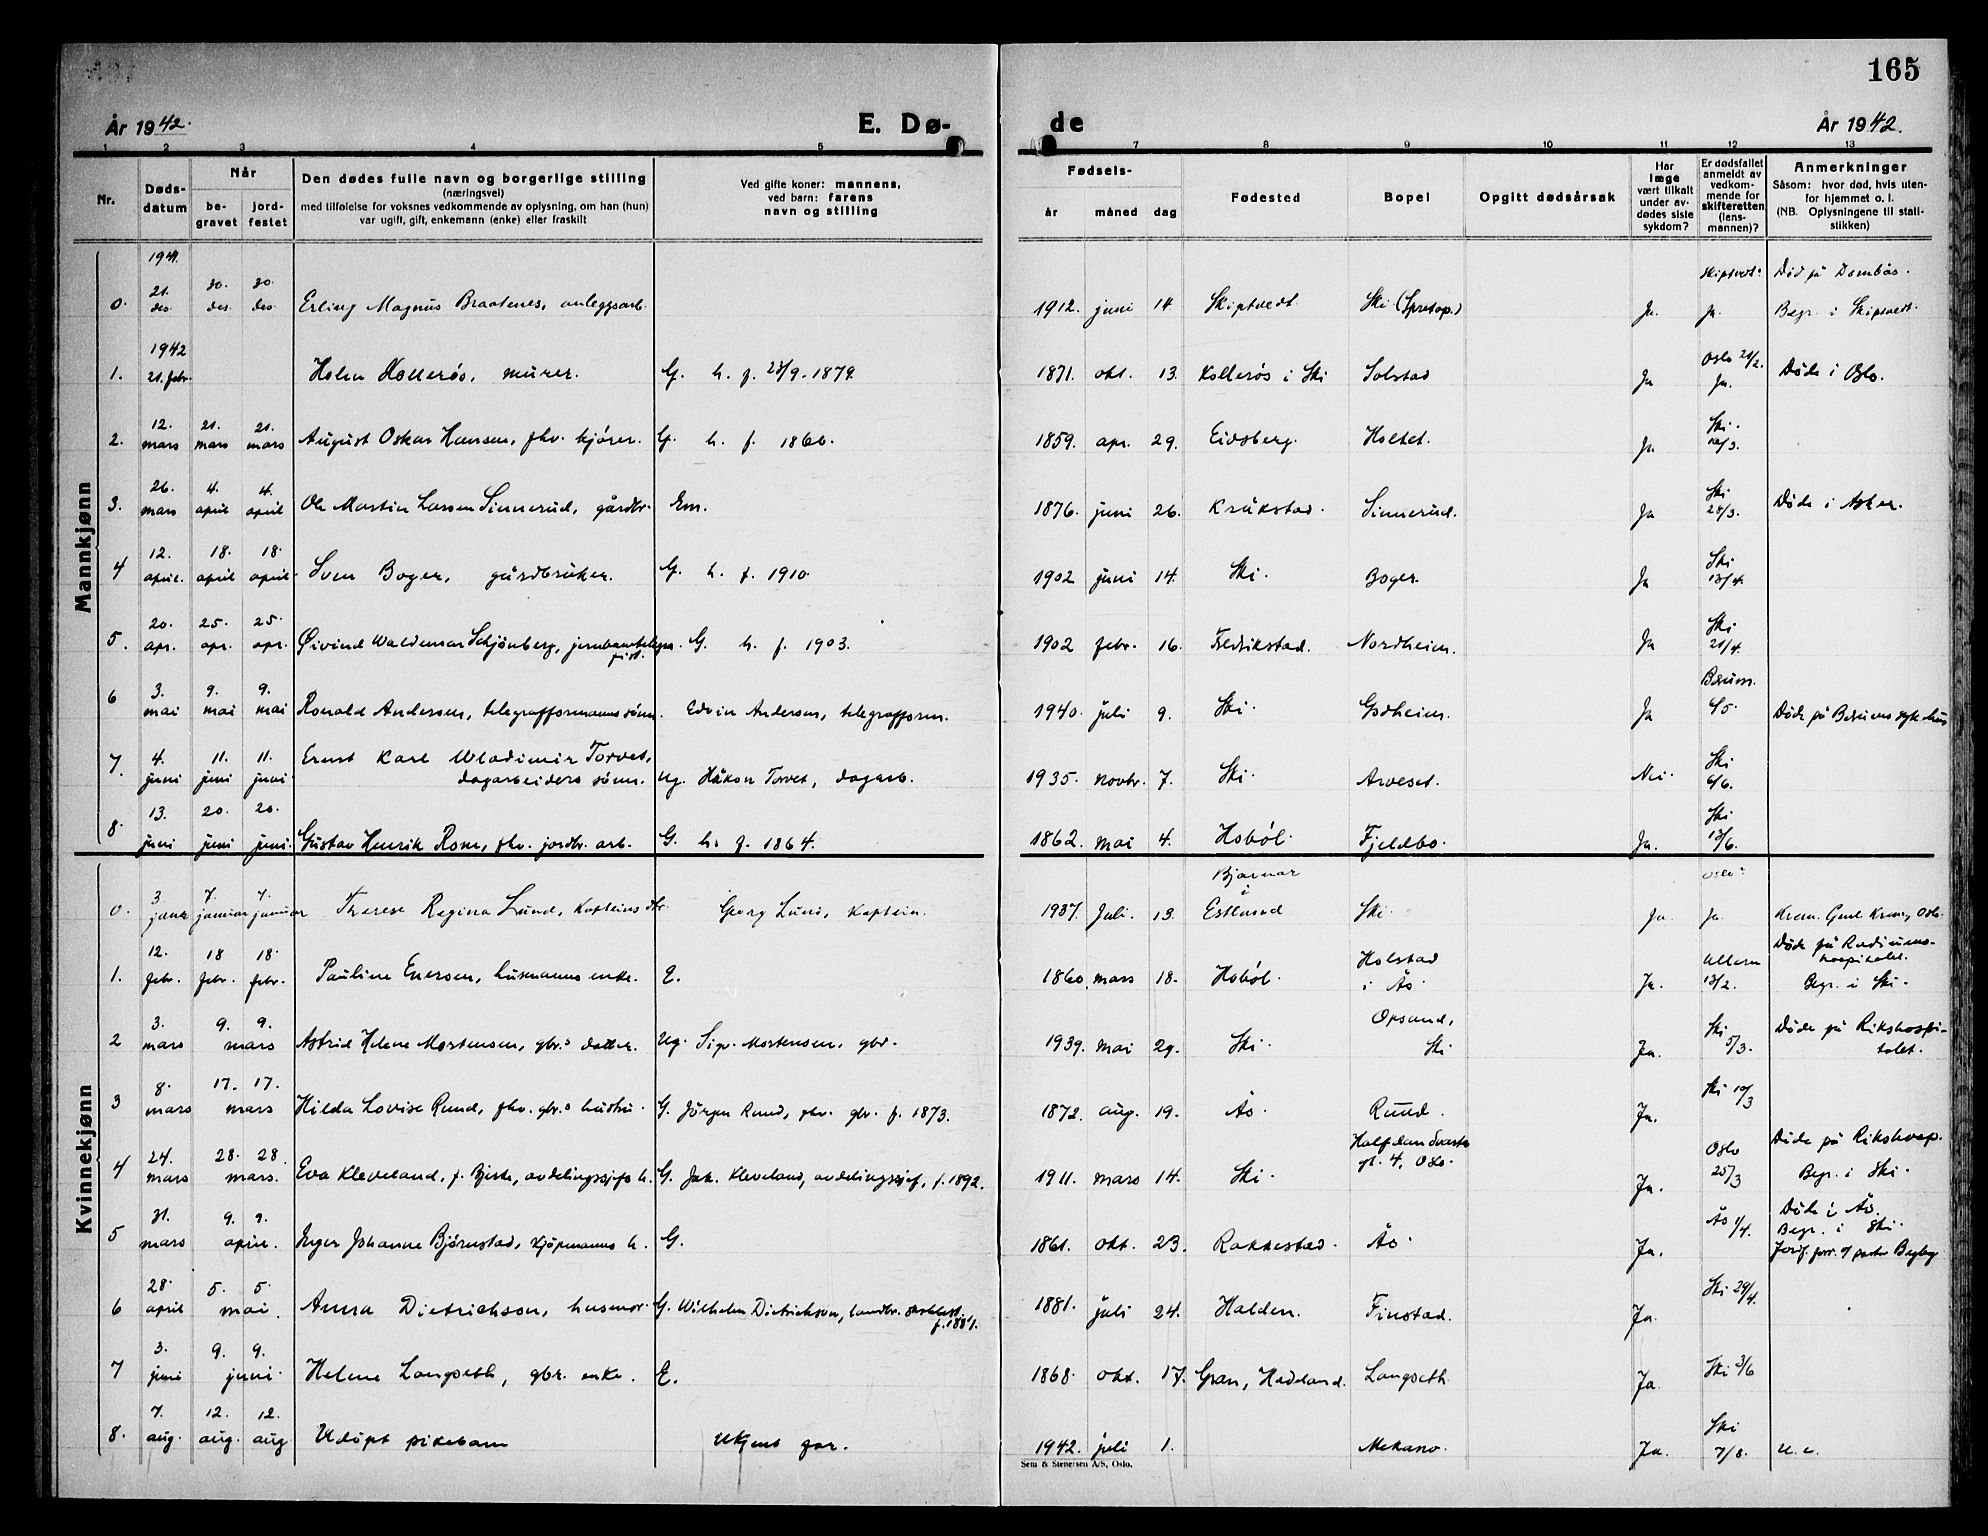 165
År 1942.
E. Dø-
de
År 1942.
1 2 3 4 5 7 8 9 10 11 12 13
Nr.
Døds-
datum
Når
be-
gravet
jord-
festet
Den dødes fulle navn og borgerlige stilling
(næringsvei)
med tilføielse for voksnes vedkommende av oplysning, om han (hun)
var ugift, gift, enkemann (enke) eller fraskilt
Ved gifte koner: mannens,
ved barn: farens
navn og stilling
Fødsels-
år måned dag
Fødested
Bopel
Opgitt dødsårsak
Har
læge
vært tilkalt
under av-
dødes siste
sykdom?
Er dødsfallet
anmeldt av
vedkom-
mende for
skifteretten
(lens-
mannen)?
Anmerkninger
Såsom: hvor død, hvis uten-
for hjemmet o. l.
(NB. Oplysningene til stati-
stikken)
Mannkjønn
1941.
0. 21. des. 30. des. 30. des. Erling Magnus Braatenes, anleggsarb. 1912. juni 14. Skiptvedt Ski Ja. Skiptvedt. Ja. Død på Dombås. Begr. i Skiptvedt.
1942
1. 21. febr. Kollerøs, murer. G. h. f. 23/9-1879. 1871. okt. 13. Kollerøs i Ski Solstad Ja Oslo 24/2. Ja. Døde i Oslo.
2. 12. mars 21. mars 21. mars August Oskar Hansen, fhv. kjører. G. h. f. 1866. 1859. apr. 29. Eidsberg. Holtet. Ja Ski
3. 26. mars 4. april 4. april Ole Martin Larsen Sinnerud, gårdbr. Em. 1876. juni 26. Kråkstad. Sinnerud. Ja Ski 28/3. Døde i Asker.
4 12. april. 18. april 18. april. Sven Boger, gårdbruker. G. h. f. 1910. 1902 juni 14. Ski. Boger. Ja Ski 13/4.
5. 20. apr. 25. apr. 25. apr. Øivind Waldemar Schjønberg, jernbanetelegra-
fist. G. h. f. 1903. 1902 febr. 16. Fredrikstad. Nordheim. Ja Ski 21/4.
6 3. mai 9. mai 9. mai Ronald Andersen, telegrafformanns sønn. Edvin Andersen, telegrafform. 1940. juli 9. Ski. Godheim. Ja Bærum. 4/5. Døde på Bærums sykehus
7. 4. juni 11. juni 11. juni. Ernst Karl Wladimir Torvet,
dagarbeiders sønn. ug. Håkon Torvet, dagarb. 1935. novbr. 7. Ski. Arveset. Nei. Ski 6/6.
8. 13. juni 20. juni 20. juni. Gustav Henrik Rom, fhv. jordbr. arb. G. h. f. 1864. 1862. mai 4. Hobøl. Fjeldbo. Ja. Ski 13/6.
Kvinnekjønn
0. 3. januar 7. januar 7. januar Therese Regina Lund, kapteins dtr. Georg Lund, kaptein. 1937. Juli. 13. Bjarnar i Estland Ski. Ja. Oslo. Ja. Krem. Gml. Krem, Oslo.
1. 12. febr. 18 febr. 18. febr. Pauline Enersen, husmanns enke. E. 1860. mars 18. Hobøl. Holstad
i Ås. Ja. Ullern 13/2. Døde på Radiums-
hospitalet.
Begr. i Ski.
2 3. mars 9. 9. mars Astrid Helene Mortensen, gbr.s datter. ug. Sigv. Mortensen, gbr. 1939. mai 29. Ski. Opsand,
Ski Ja. Ski 5/3. Døde på Rikshospi-
talet.
3 8. mars 17. 17. mars Hilda Lovise Ruud, fhv. gbr.s hustru. G. Jørgen Ruud, fhv. gbr. f. 1873. 1872. aug. 19. Ås. Ruud. Ja. Ski 10/3
4 24. mars 28. 28. mars. Eva Kleveland, f. Bjerke, avdelingssjefs h. G. Jak. Kleveland, avdelingssjef, f. 1892. 1911. mars 14. Ski. Halfdan Svartes
gt. 4, Oslo. Ja. Oslo 25/3 Døde på Rikshosp.
Begr. i Ski.
5 31. mars 9. 9. april. Inger Johanne Bjørnstad, kjøpmanns h. G. 1861. okt. 23. Rakkestad. Ås. Ja. Ås 1/4. Døde i Ås.
Begr. i Ski.
Jordf. forr. af pastor Begby
6 28. april 5. 5. mai. Anna Dietrichson, husmor. G. Wilhelm Dietrichson, landbr.
f. 1881. 1881. juli 24. Halden. Finstad. Ja. Ski 29/4.
7 3. juni 9. 9. juni. Helene Langseth, gbr. enke. E. 1868. okt. 17. Gran, Hadeland. Langseth. Ja. Ski 3/6
8. 7. aug. 12. aug. 12. aug. Udøpt pikebarn Ukjent far. 1942. juli 1. Mekano. Ja. Ski 7/8. u. e.
Sem & Stenersen A/S, Oslo.